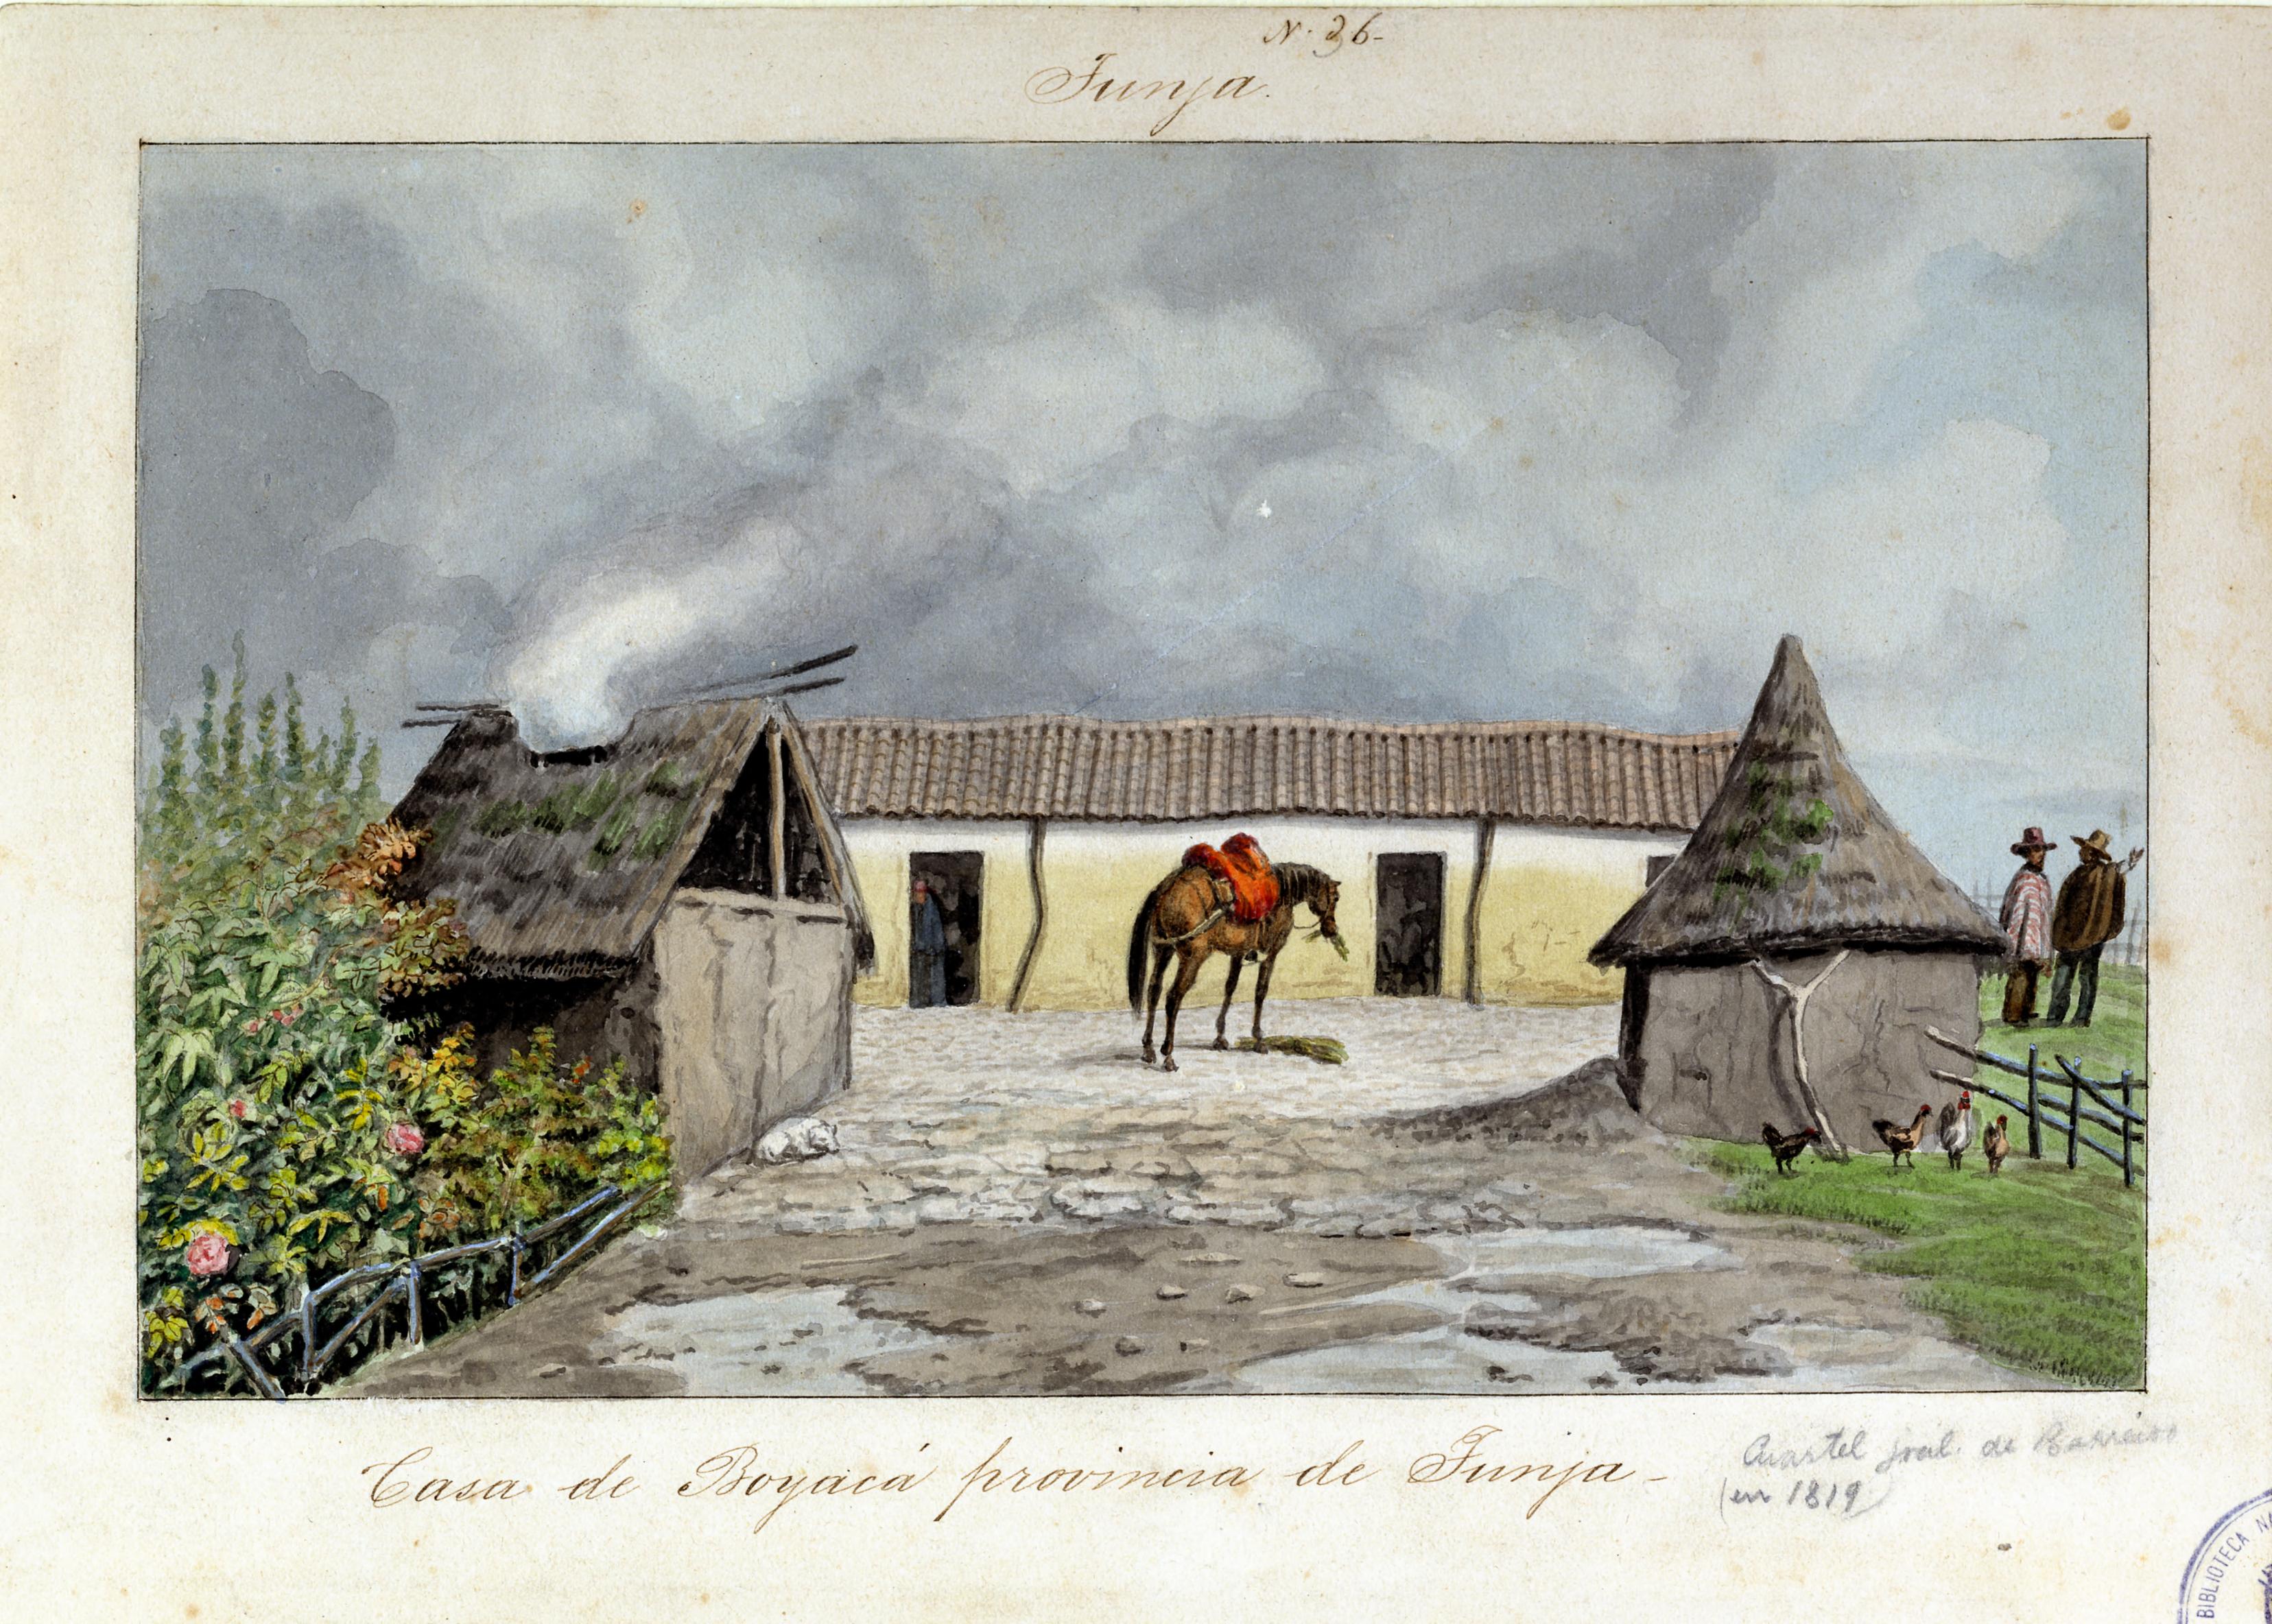 N. 36-
Tunja.
Casa de Boyacá provincia de Tunja-
Cuartel gral. de Barreiro
(en 1819)
BIBLIOTECA NA